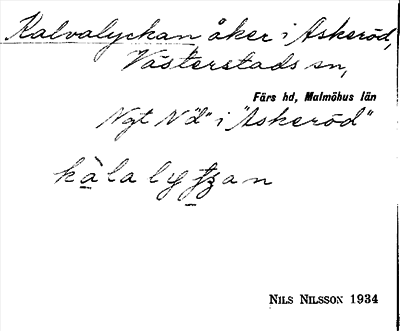 Kalvalyckan åker i Askeröd,
Västerstads sn,
Färs hd, Malmöhus län
Ngt N "d" i "Askeröd"
kàlalyţʒan
NILS NILSSON 1934